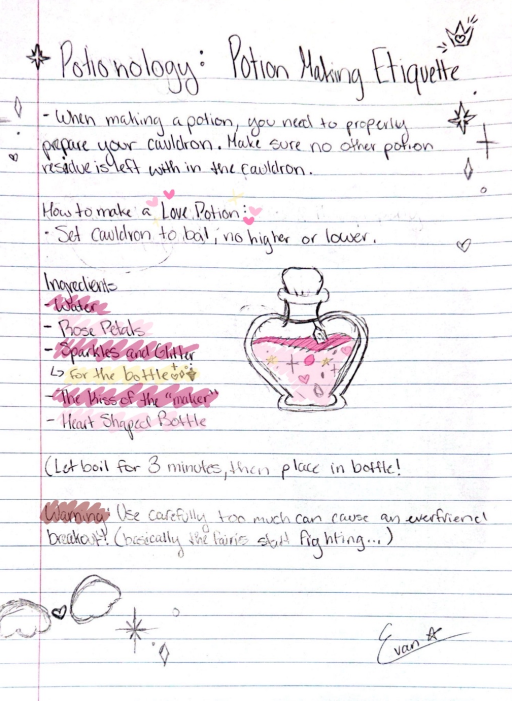 Potionology: Potion Making Etiquette
- When making a potion, you need to properly
prepare your cauldron. Make sure no other potion
residue is left with in the cauldron.
How to make a Love Potion:
- Set cauldron to boil, no higher or lower.
Ingredients
- Water
- Rose Petals
- Sparkles and Glitter
↳ For the bottle
- The kiss of the "maker"
- Heart Shaped Bottle
(Let boil for 3 minutes, then place in bottle!
Warning: Use carefully too much can cause an everfriend
breakout! (basically the fairies start fighting...)
Evan